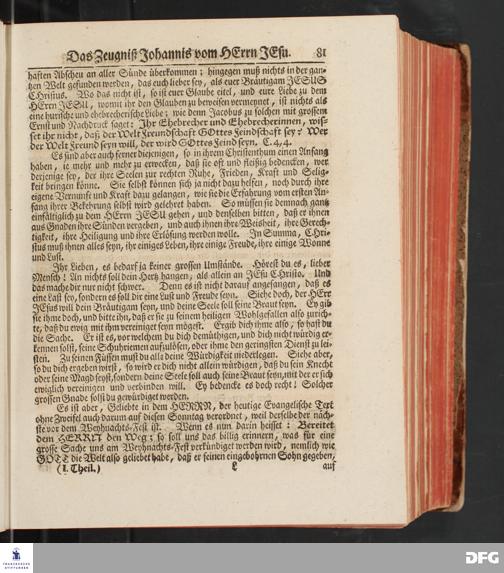 Das Zeugniß Johannis vom HErrn JEsu. 81
haften Abscheu an aller Sünde überkommen; hingegen muß nichts in der gan-
tzen Welt gefunden werden, das euch lieber sey, als euer Bräutigam JESUS
CHristus. Wo das nicht ist, so ist euer Glaube eitel, und eure Liebe zu dem
HErrn JESU, womit ihr den Glauben zu beweisen vermeynet, ist nichts als
eine hurische und ehebrecherische Liebe; wie denn Jacobus zu solchen mit grossem
Ernst und Nachdruck saget: Ihr Ehebrecher und Ehebrecherinnen, wis-
set ihr nicht, daß der Welt Freundschaft GOttes Feindschaft sey? Wer
der Welt Freund seyn will, der wird GOttes Feind seyn. C. 4, 4.
Es sind aber auch ferner diejenigen, so in ihrem Christenthum einen Anfang
haben, ie mehr und mehr zu erwecken, daß sie oft und fleißig bedencken, wer
derjenige sey, der ihre Seelen zur rechten Ruhe, Frieden, Kraft und Selig-
keit bringen könne. Sie selbst können sich ja nicht dazu helfen, noch durch ihre
eigene Vernunft und Kraft dazu gelangen, wie sie die Erfahrung vom ersten An-
fang ihrer Bekehrung selbst wird gelehret haben. So müssen sie demnach gantz
einfältiglich zu dem HErrn JESU gehen, und denselben bitten, daß er ihnen
aus Gnaden ihre Sünden vergeben, und auch ihnen ihre Weisheit, ihre Gerech-
tigkeit, ihre Heiligung und ihre Erlösung werden wolle. In Summa, CHri-
stus muß ihnen alles seyn, ihr einiges Leben, ihre einige Freude, ihre einige Wonne
und Lust.
Ihr Lieben, es bedarf ja keiner grossen Umstände. Hörest du es, lieber
Mensch! An nichts soll dein Hertz hangen, als allein an JEsu CHristo. Und
das mache dir nur nicht schwer. Denn es ist nicht darauf angefangen, daß es
eine Last sey, sondern es soll dir eine Lust und Freude seyn. Siehe doch, der HErr
JEsus will dein Bräutigam seyn, und deine Seele soll seine Braut seyn. Ey gib
sie ihme doch, und bitte ihn, daß er sie zu seinem heiligen Wohlgefallen also zurich-
te, daß du ewig mit ihm vereiniget seyn mögest. Ergib dich ihme also, so hast du
die Sache. Er ist es, vor welchem du dich demüthigen, und dich nicht würdig er-
kennen solst, seine Schuhriemen aufzulösen, oder ihme den geringsten Dienst zu lei-
sten. Zu seinen Füssen must du alle deine Würdigkeit niederlegen. Siehe aber,
so du dich ergeben wirst, so wird er dich nicht allein würdigen, daß du sein Knecht
oder seine Magd seyst, sondern deine Seele soll auch seine Braut seyn, mit der er sich
ewiglich vereinigen und verbinden will. Ey bedencke es doch recht! Solcher
grossen Gnade solst du gewürdiget werden.
Es ist aber, Geliebte in dem HERRN, der heutige Evangelische Text
ohne Zweifel auch darum auf diesen Sonntag verordnet, weil derselbe der näch-
ste vor dem Weyhnachts-Fest ist. Wenn es nun darin heisset: Bereitet
dem HERRN den Weg; so soll uns das billig erinnern, was für eine
grosse Sache uns am Weyhnachts-Fest verkündiget werden wird, nemlich wie
GOTT die Welt also geliebet habe, daß er seinen eingebohrnen Sohn gegeben,
(I. Theil.) L auf
FRANCKESCHE
STIFTUNGEN
DFG